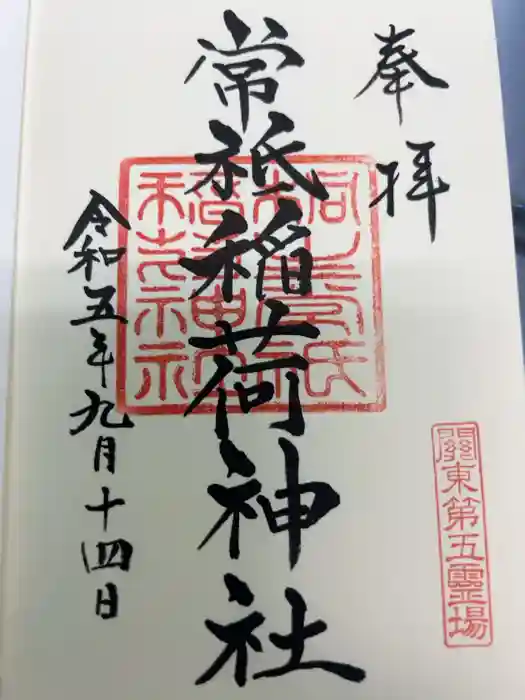 奉拝
關東第五靈場
常祇稲荷神社
令和五年九月十四日